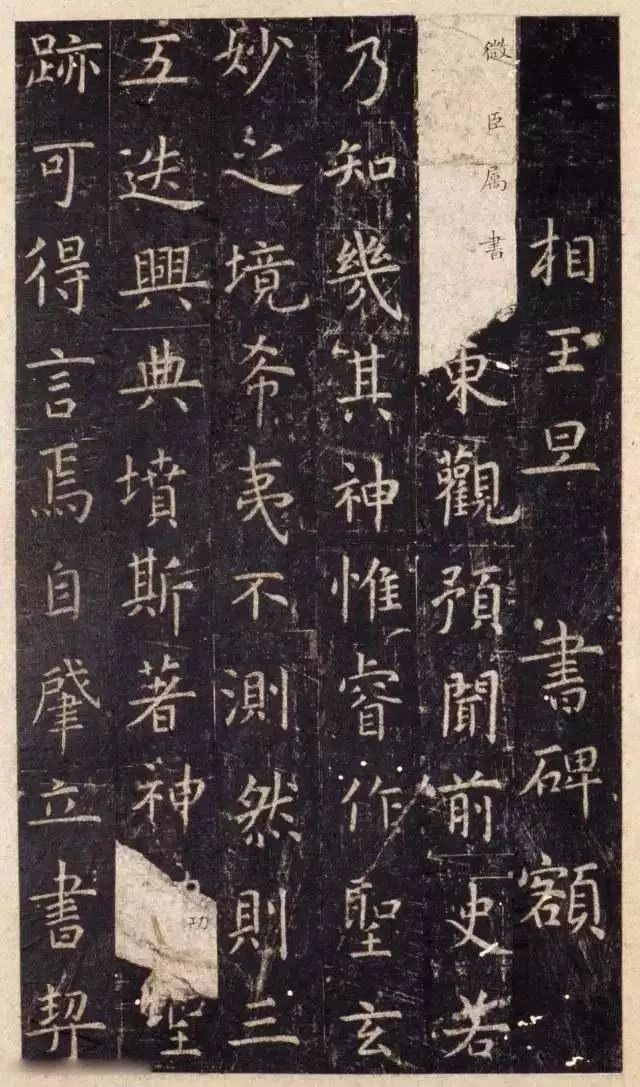 相王旦書碑額
微臣属書
東觀預聞前史若
乃知幾其神惟睿作聖玄
妙之境希夷不測然則三
五迭興典墳斯著神
功
聖
跡可得言焉自肇立書契